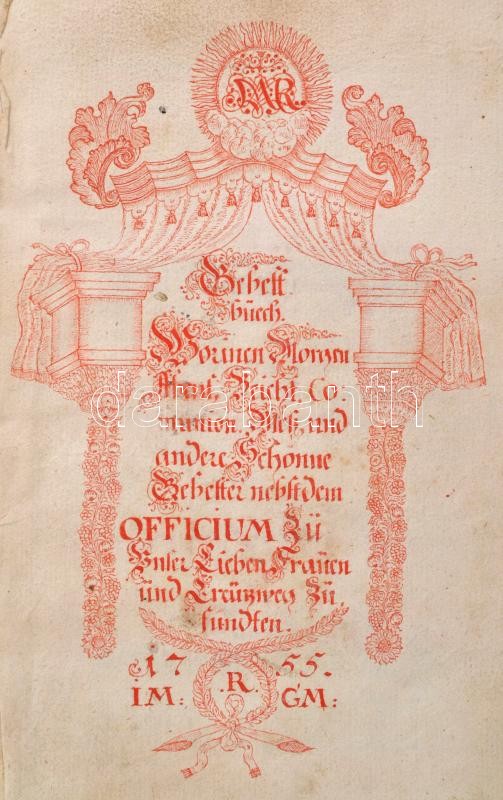 MAR
Gebett
büech.
Worinen Morgen
Abent, Beicht, Co-
munion, Mesz, und
andere Schönne
Gebetter nebst dem
OFFICIUM Zü
Unser Lieben Fraüen
und Creützweg Zü
fündten.
1755.
IM: .R. GM:
darabanth